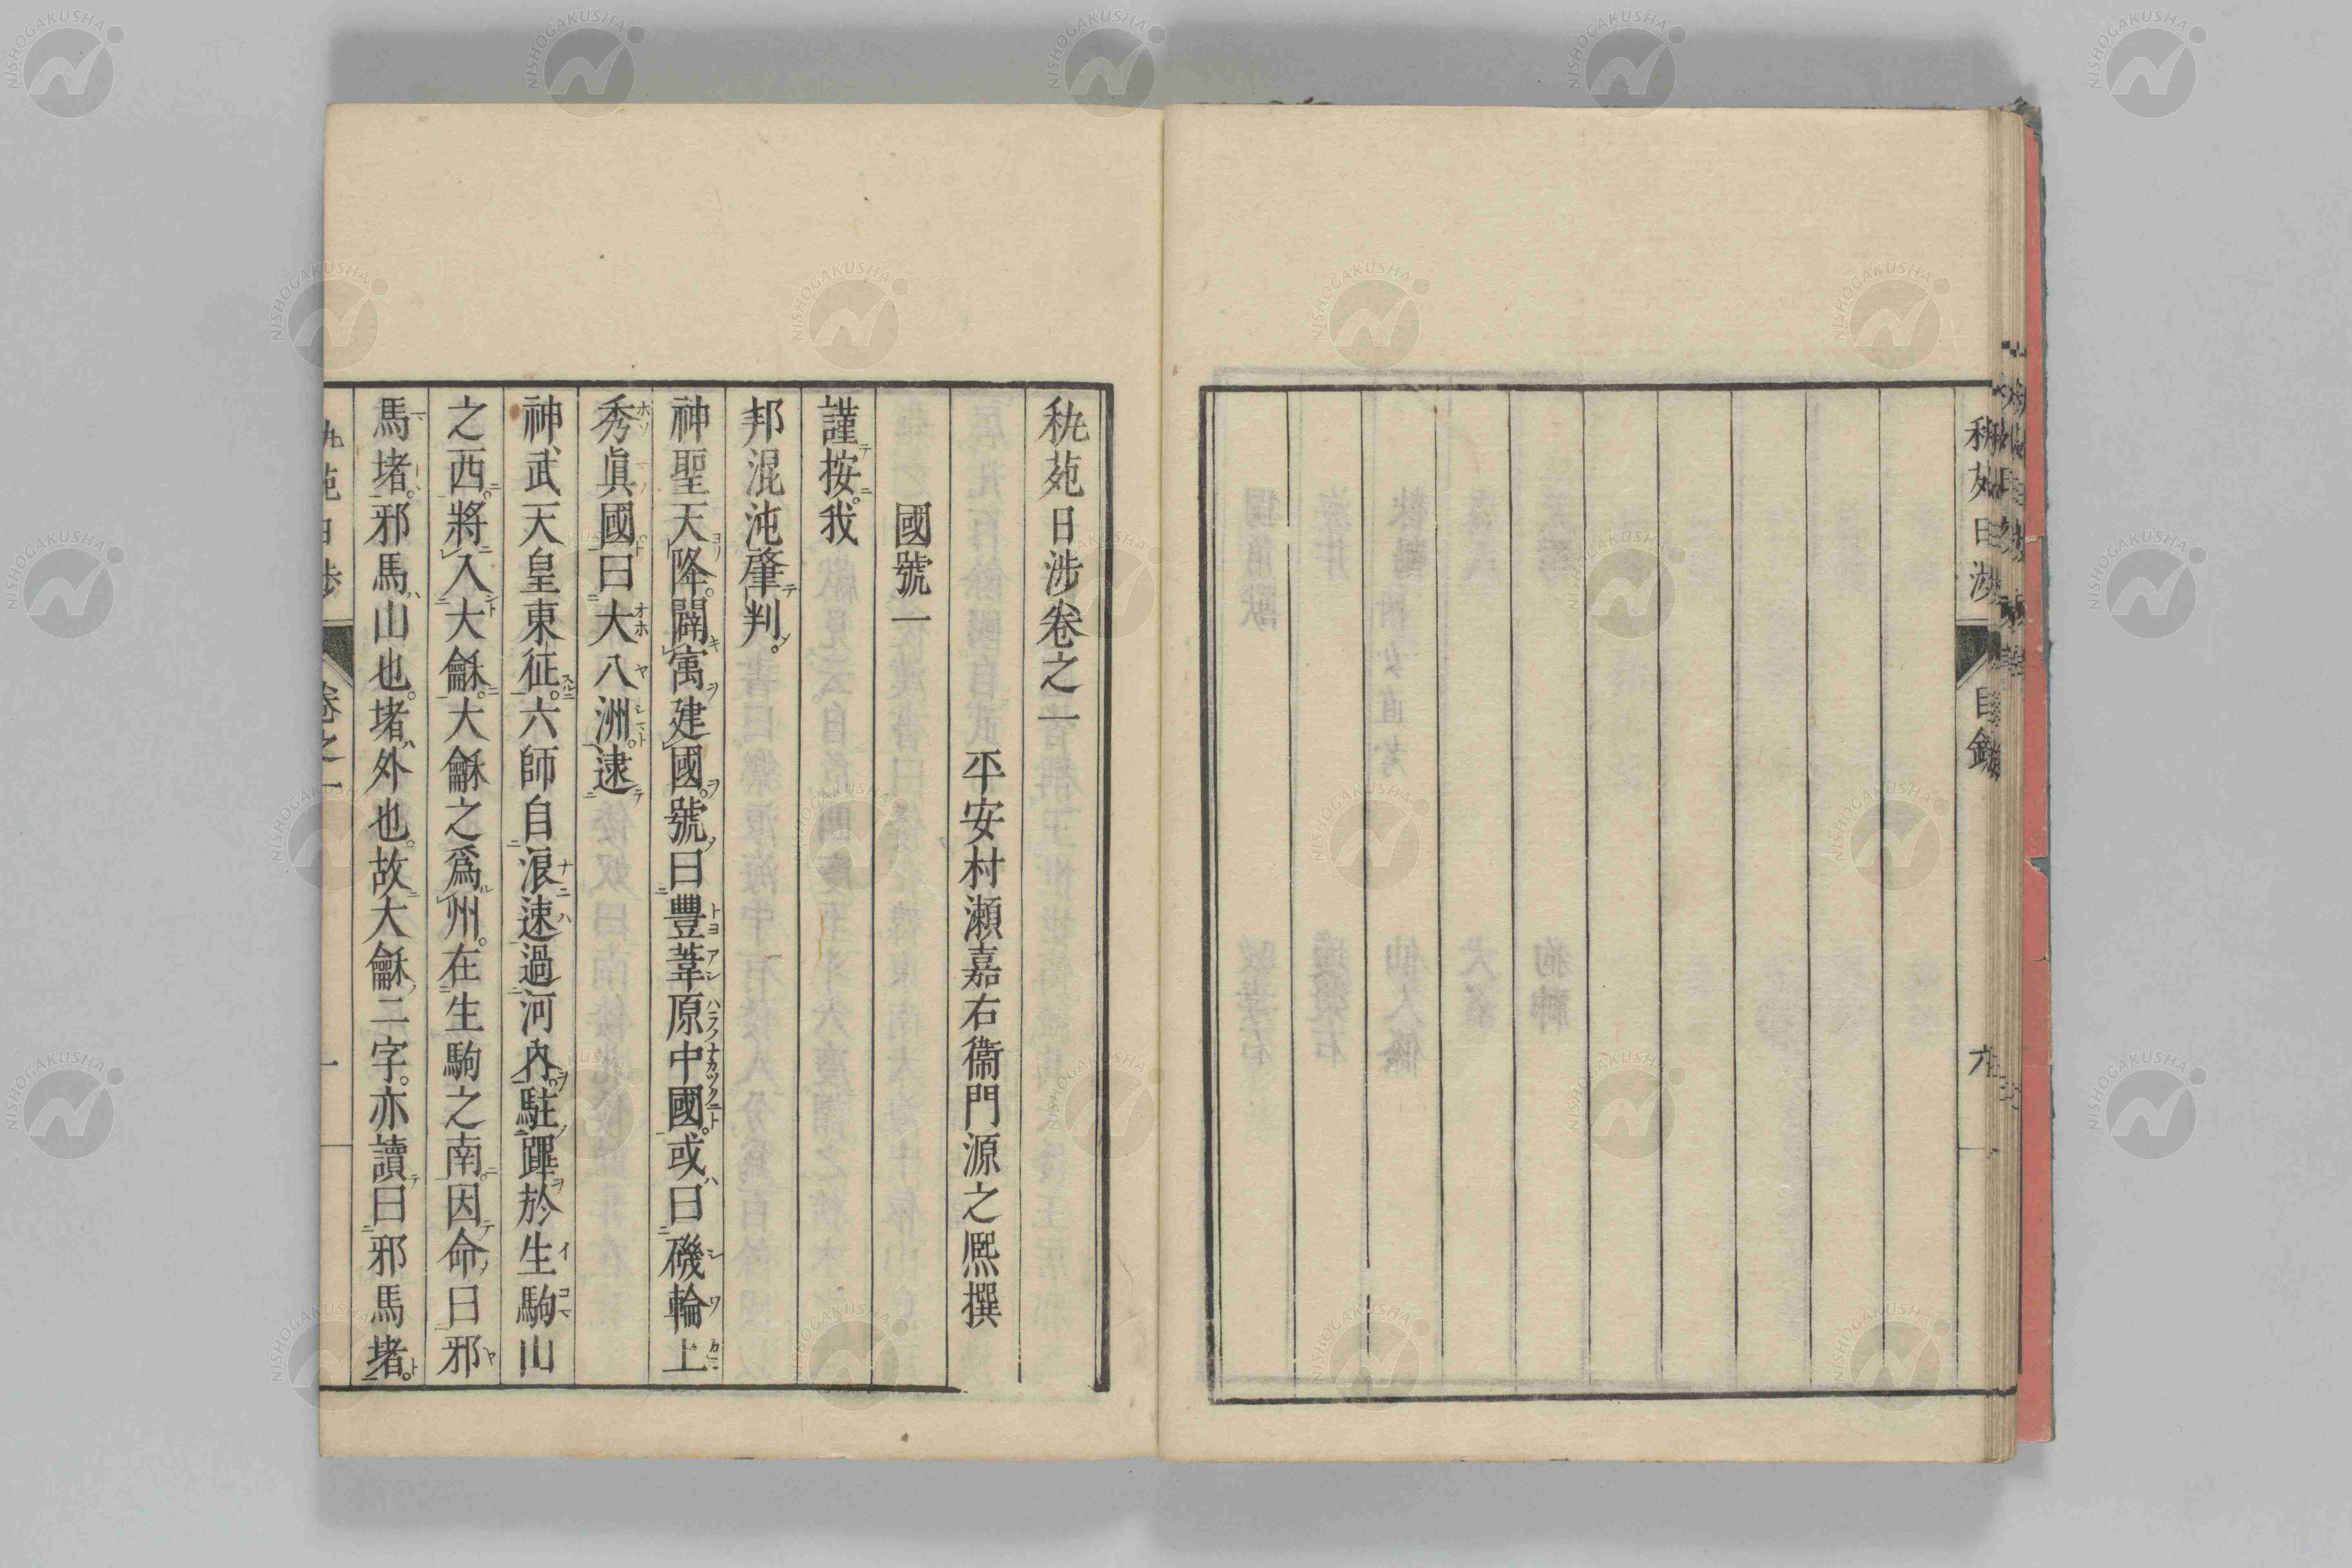 秇苑日涉
目錄
六
秇苑日涉卷之一
平安村瀬嘉右衞門源之熈撰
國號一
謹按。我
邦混沌肇判。
神聖天降。闢寓建國。號曰豐葦原中國。或曰磯輪上
秀眞國曰大八洲。逮
神武天皇東征。六師自浪速過河內。駐蹕於生駒山
之西。將入大龢。大龢之爲州。在生駒之南。因命曰邪
馬堵。邪馬山也。堵外也。故大龢二字。亦讀曰邪馬堵。
秇苑日涉
卷之一
一
NISHOGAKUSHA